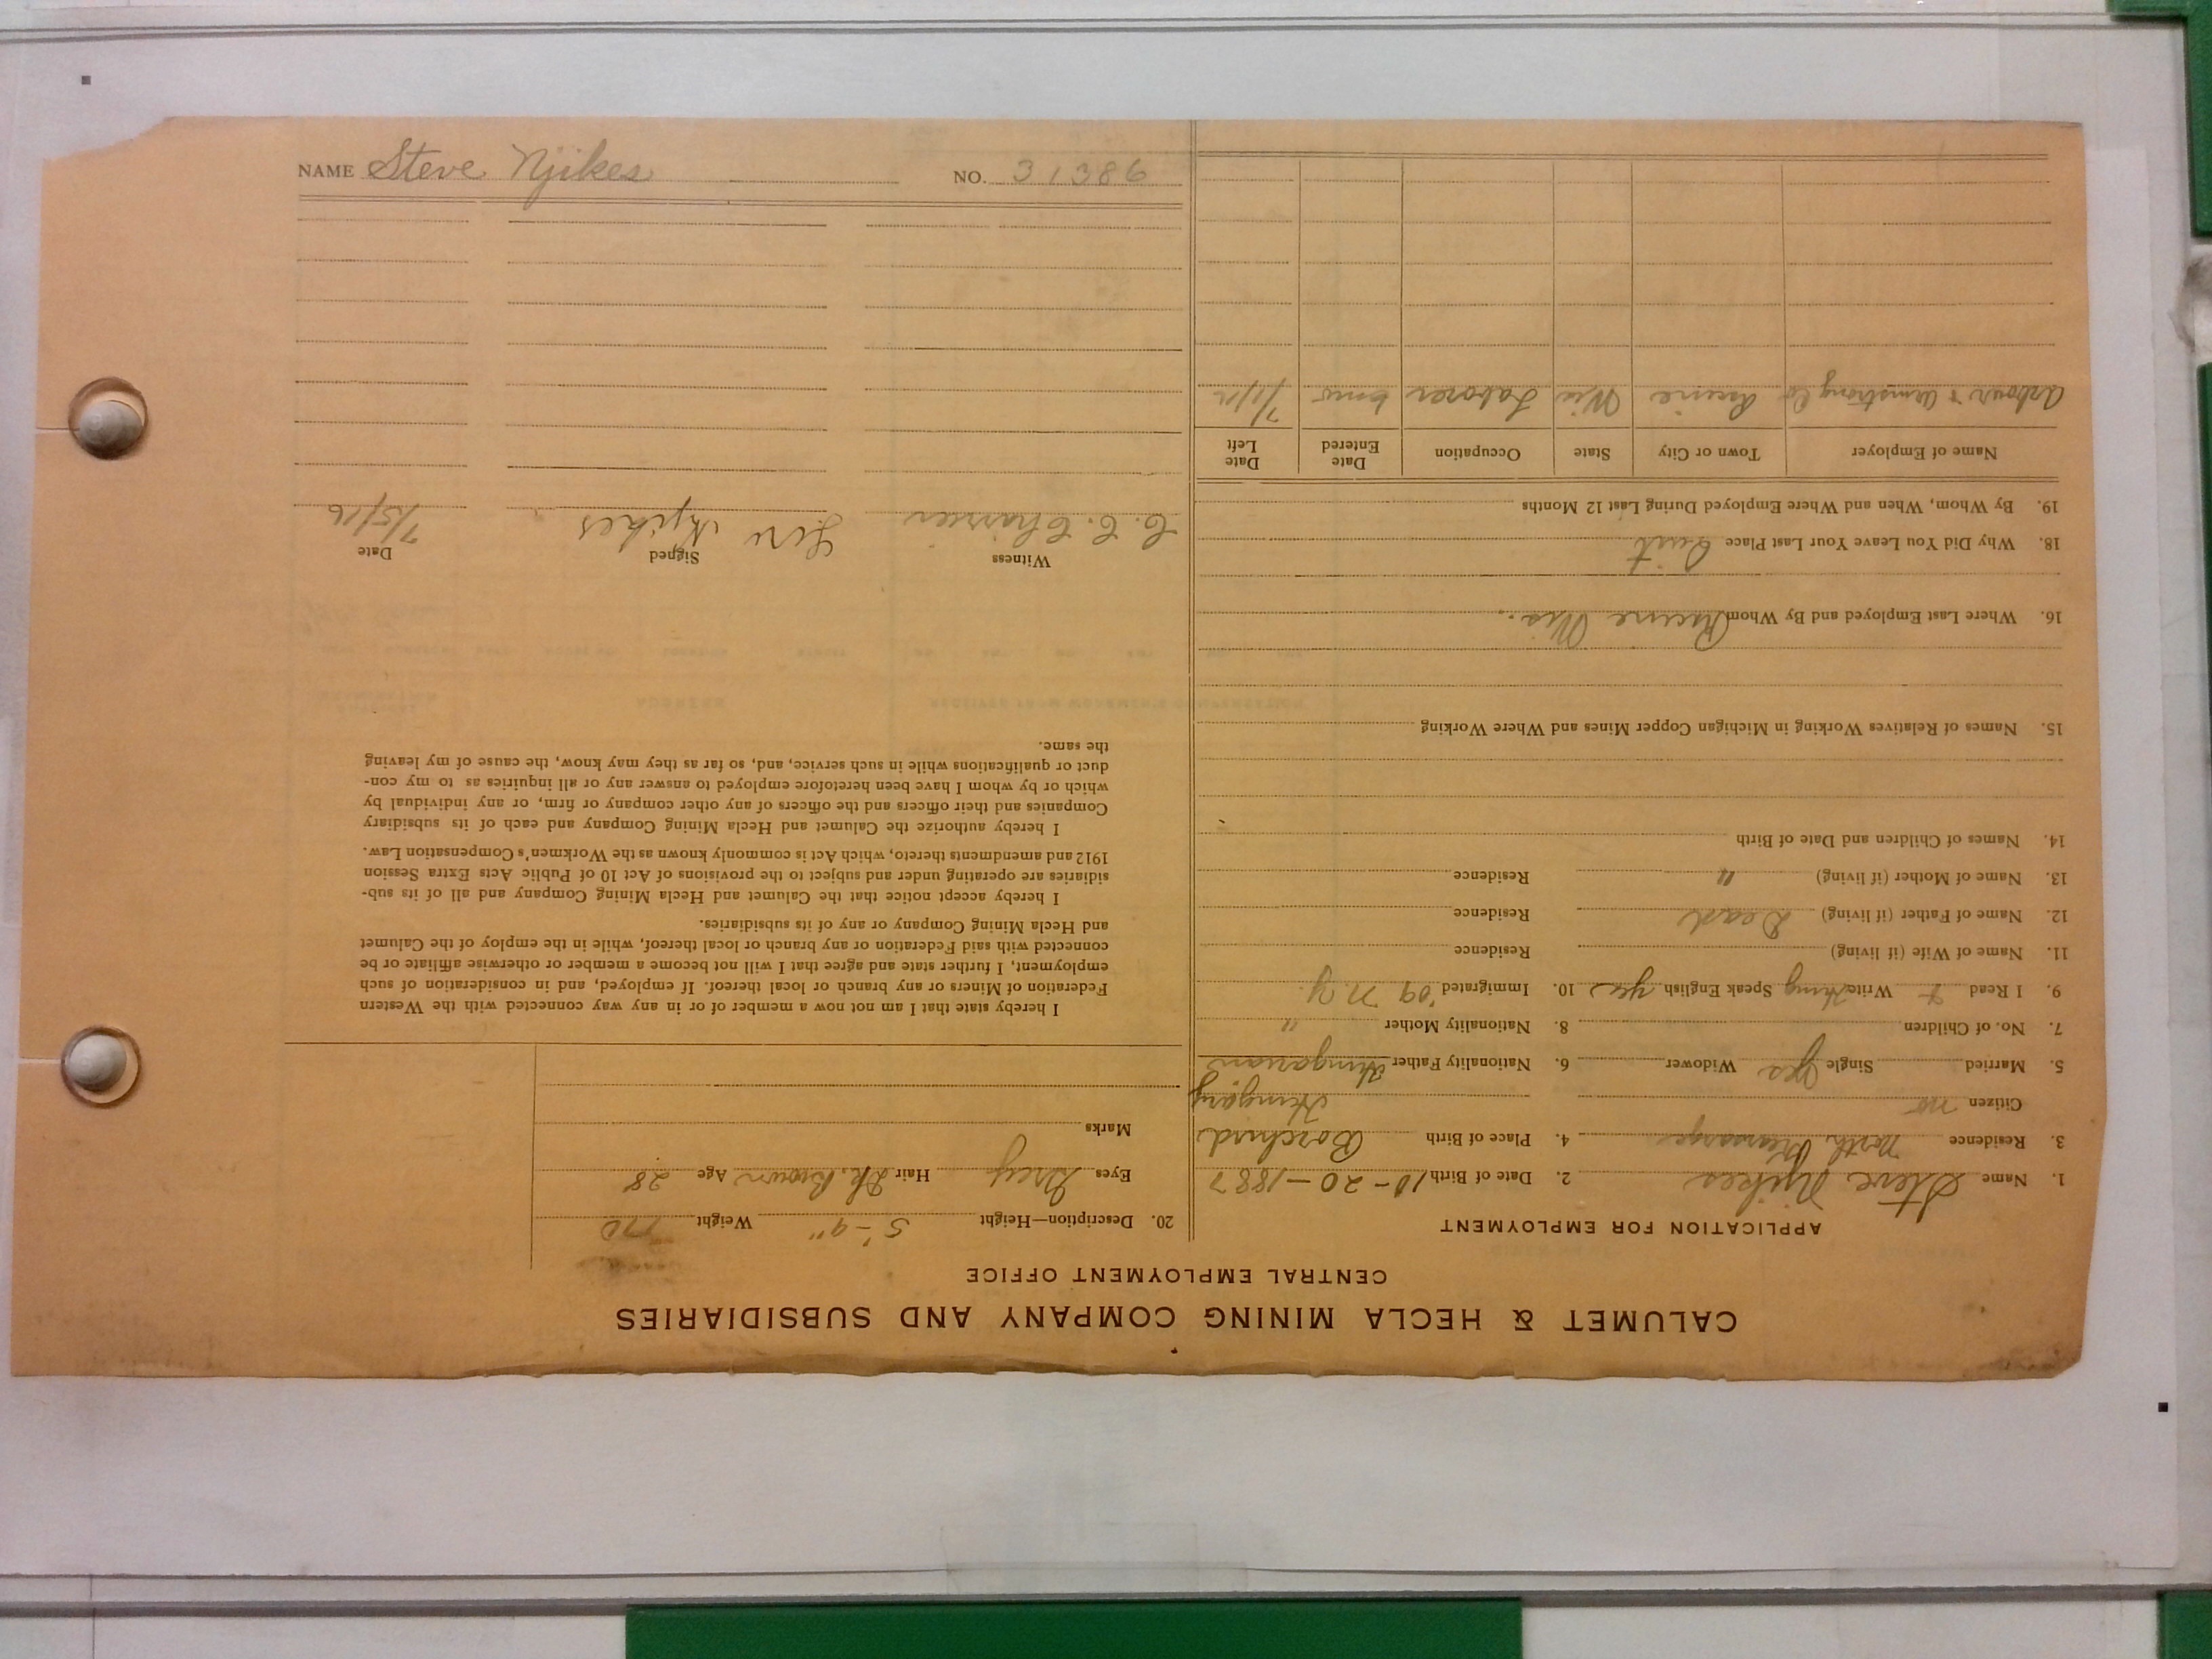 NAME Steve Njikes NO. 31386
CALUMET & HECLA MINING COMPANY AND SUBSIDIARIES
CENTRAL EMPLOYMENT OFFICE
APPLICATION FOR EMPLOYMENT
1. Name Steve Njikes 2. Date of Birth 10-20-1887
3. Residence North Kearsarge 4. Place of Birth
Citizen no Hungary
5. Married Single yes Widower 6. Nationality Father Hungarian
7. No. of Children 8. Nationality Mother "
9. I Read + Write Hung Speak English yes 10. Immigrated '09 N.Y.
11. Name of Wife (if living) Residence
12. Name of Father (if living) Dead Residence
13. Name of Mother (if living) " Residence
14. Names of Children and Date of Birth
15. Names of Relatives Working in Michigan Copper Mines and Where Working
16. Where Last Employed and By Whom Racine Wis.
18. Why Did You Leave Your Last Place Quit
19. By Whom, When and Where Employed During Last 12 Months
Name of Employer Town or City State Occupation Date Entered Date Left
& Armstrong Co Racine Wis Laborer 6 mo 7/1/16
20. Description—Height 5'-9" Weight 170
Eyes Grey Hair Dk. Brown Age 28
Marks
I hereby state that I am not now a member of or in any way connected with the Western
Federation of Miners or any branch or local thereof. If employed, and in consideration of such
employment, I further state and agree that I will not become a member or otherwise affiliate or be
connected with said Federation or any branch or local thereof, while in the employ of the Calumet
and Hecla Mining Company or any of its subsidiaries.
I hereby accept notice that the Calumet and Hecla Mining Company and all of its sub-
sidiaries are operating under and subject to the provisions of Act 10 of Public Acts Extra Session
1912 and amendments thereto, which Act is commonly known as the Workmen's Compensation Law.
I hereby authorize the Calumet and Hecla Mining Company and each of its subsidiary
Companies and their officers and the officers of any other company or firm, or any individual by
which or by whom I have been heretofore employed to answer any or all inquiries as to my con-
duct or qualifications while in such service, and, so far as they may know, the cause of my leaving
the same.
Witness Signed Date
C. C. Njikes 7/15/16